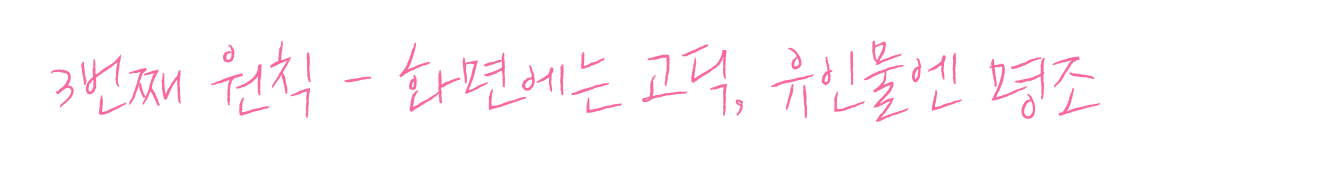 3번째 원칙 - 화면에는 고딕, 유인물엔 명조